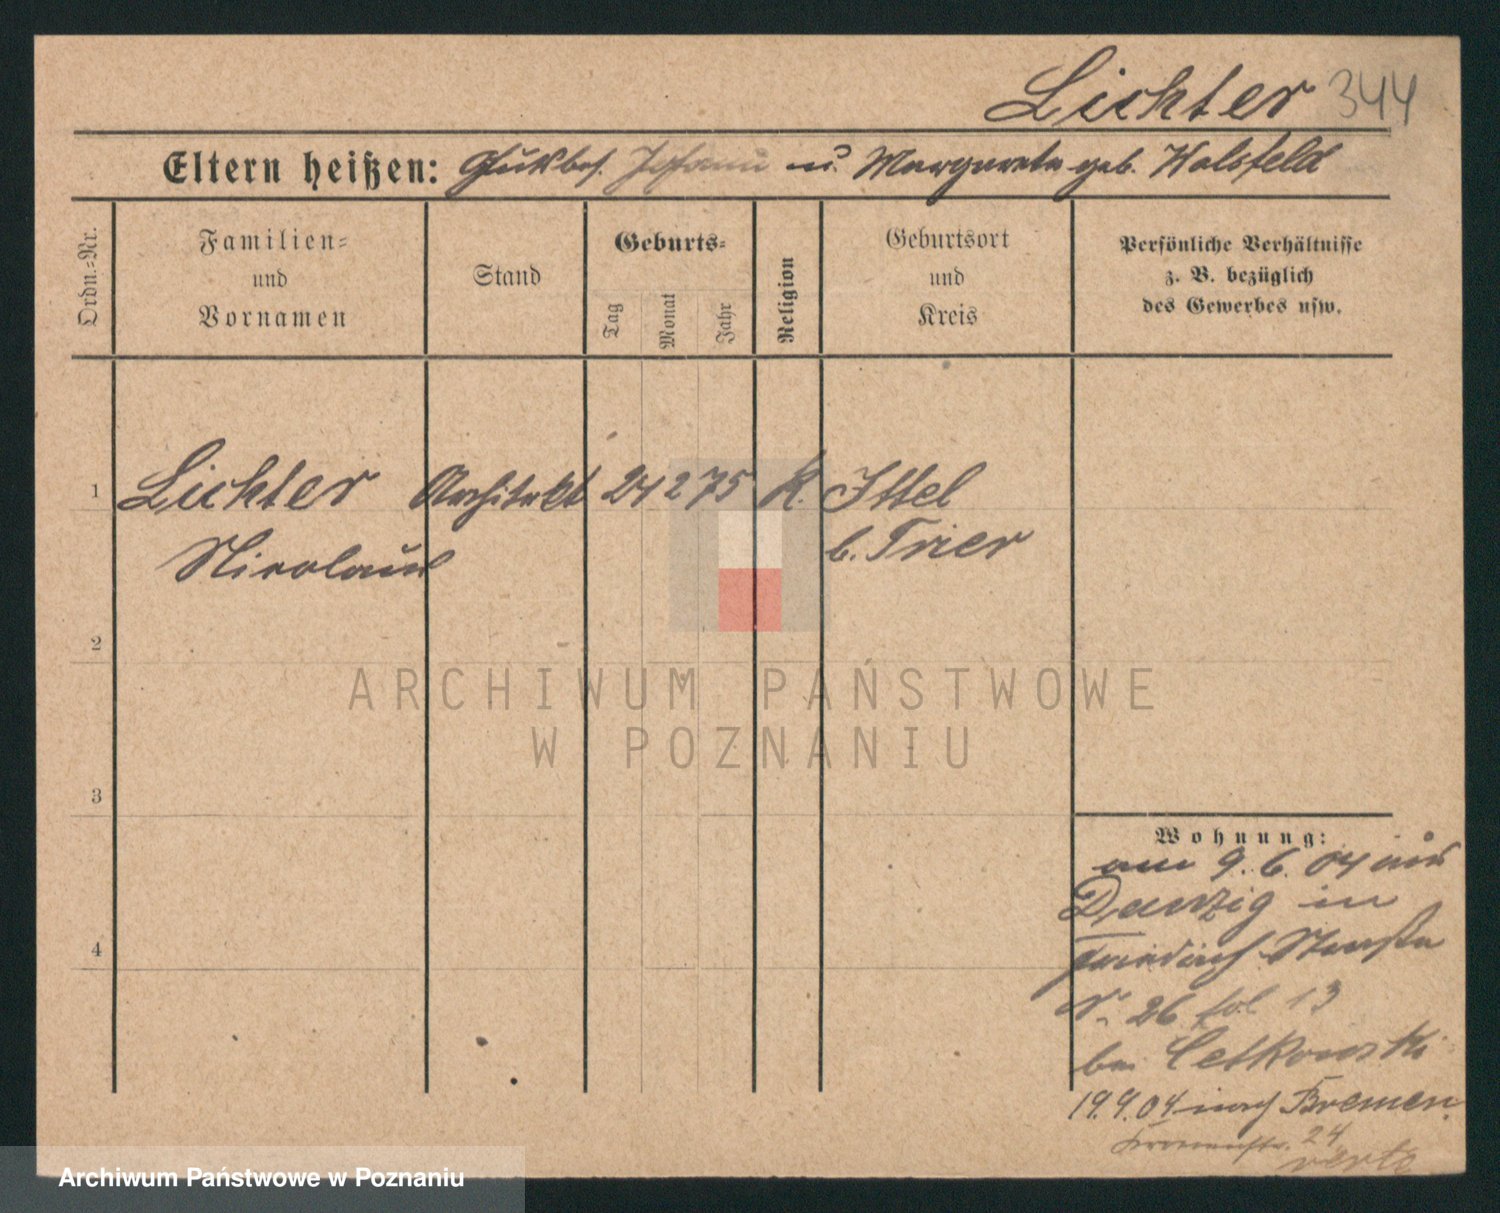 Lichter 344
Eltern heißen: Gutsbes. Johann u. Margareta geb. Walsfeld
Ordn.-Nr.
Familien-
und
Vornamen
Stand
Geburts-
Tag
Monat
Jahr
Religion
Geburtsort
und
Kreis
Persönliche Verhältnisse
z. B. bezüglich
des Gewerbes usw.
1 Lichter Architekt 24 2 75 K. Ittel
Nicolaus b. Trier
2
ARCHIWUM PAŃSTWOWE
W POZNANIU
3
Wohnung:
am 9.6.04 aus
Danzig in
4
Friedrich-Straße
N. 26 fol 13
bei Cetkowski
19.9.04 nach Bremen.
24
verte
Archiwum Państwowe w Poznaniu